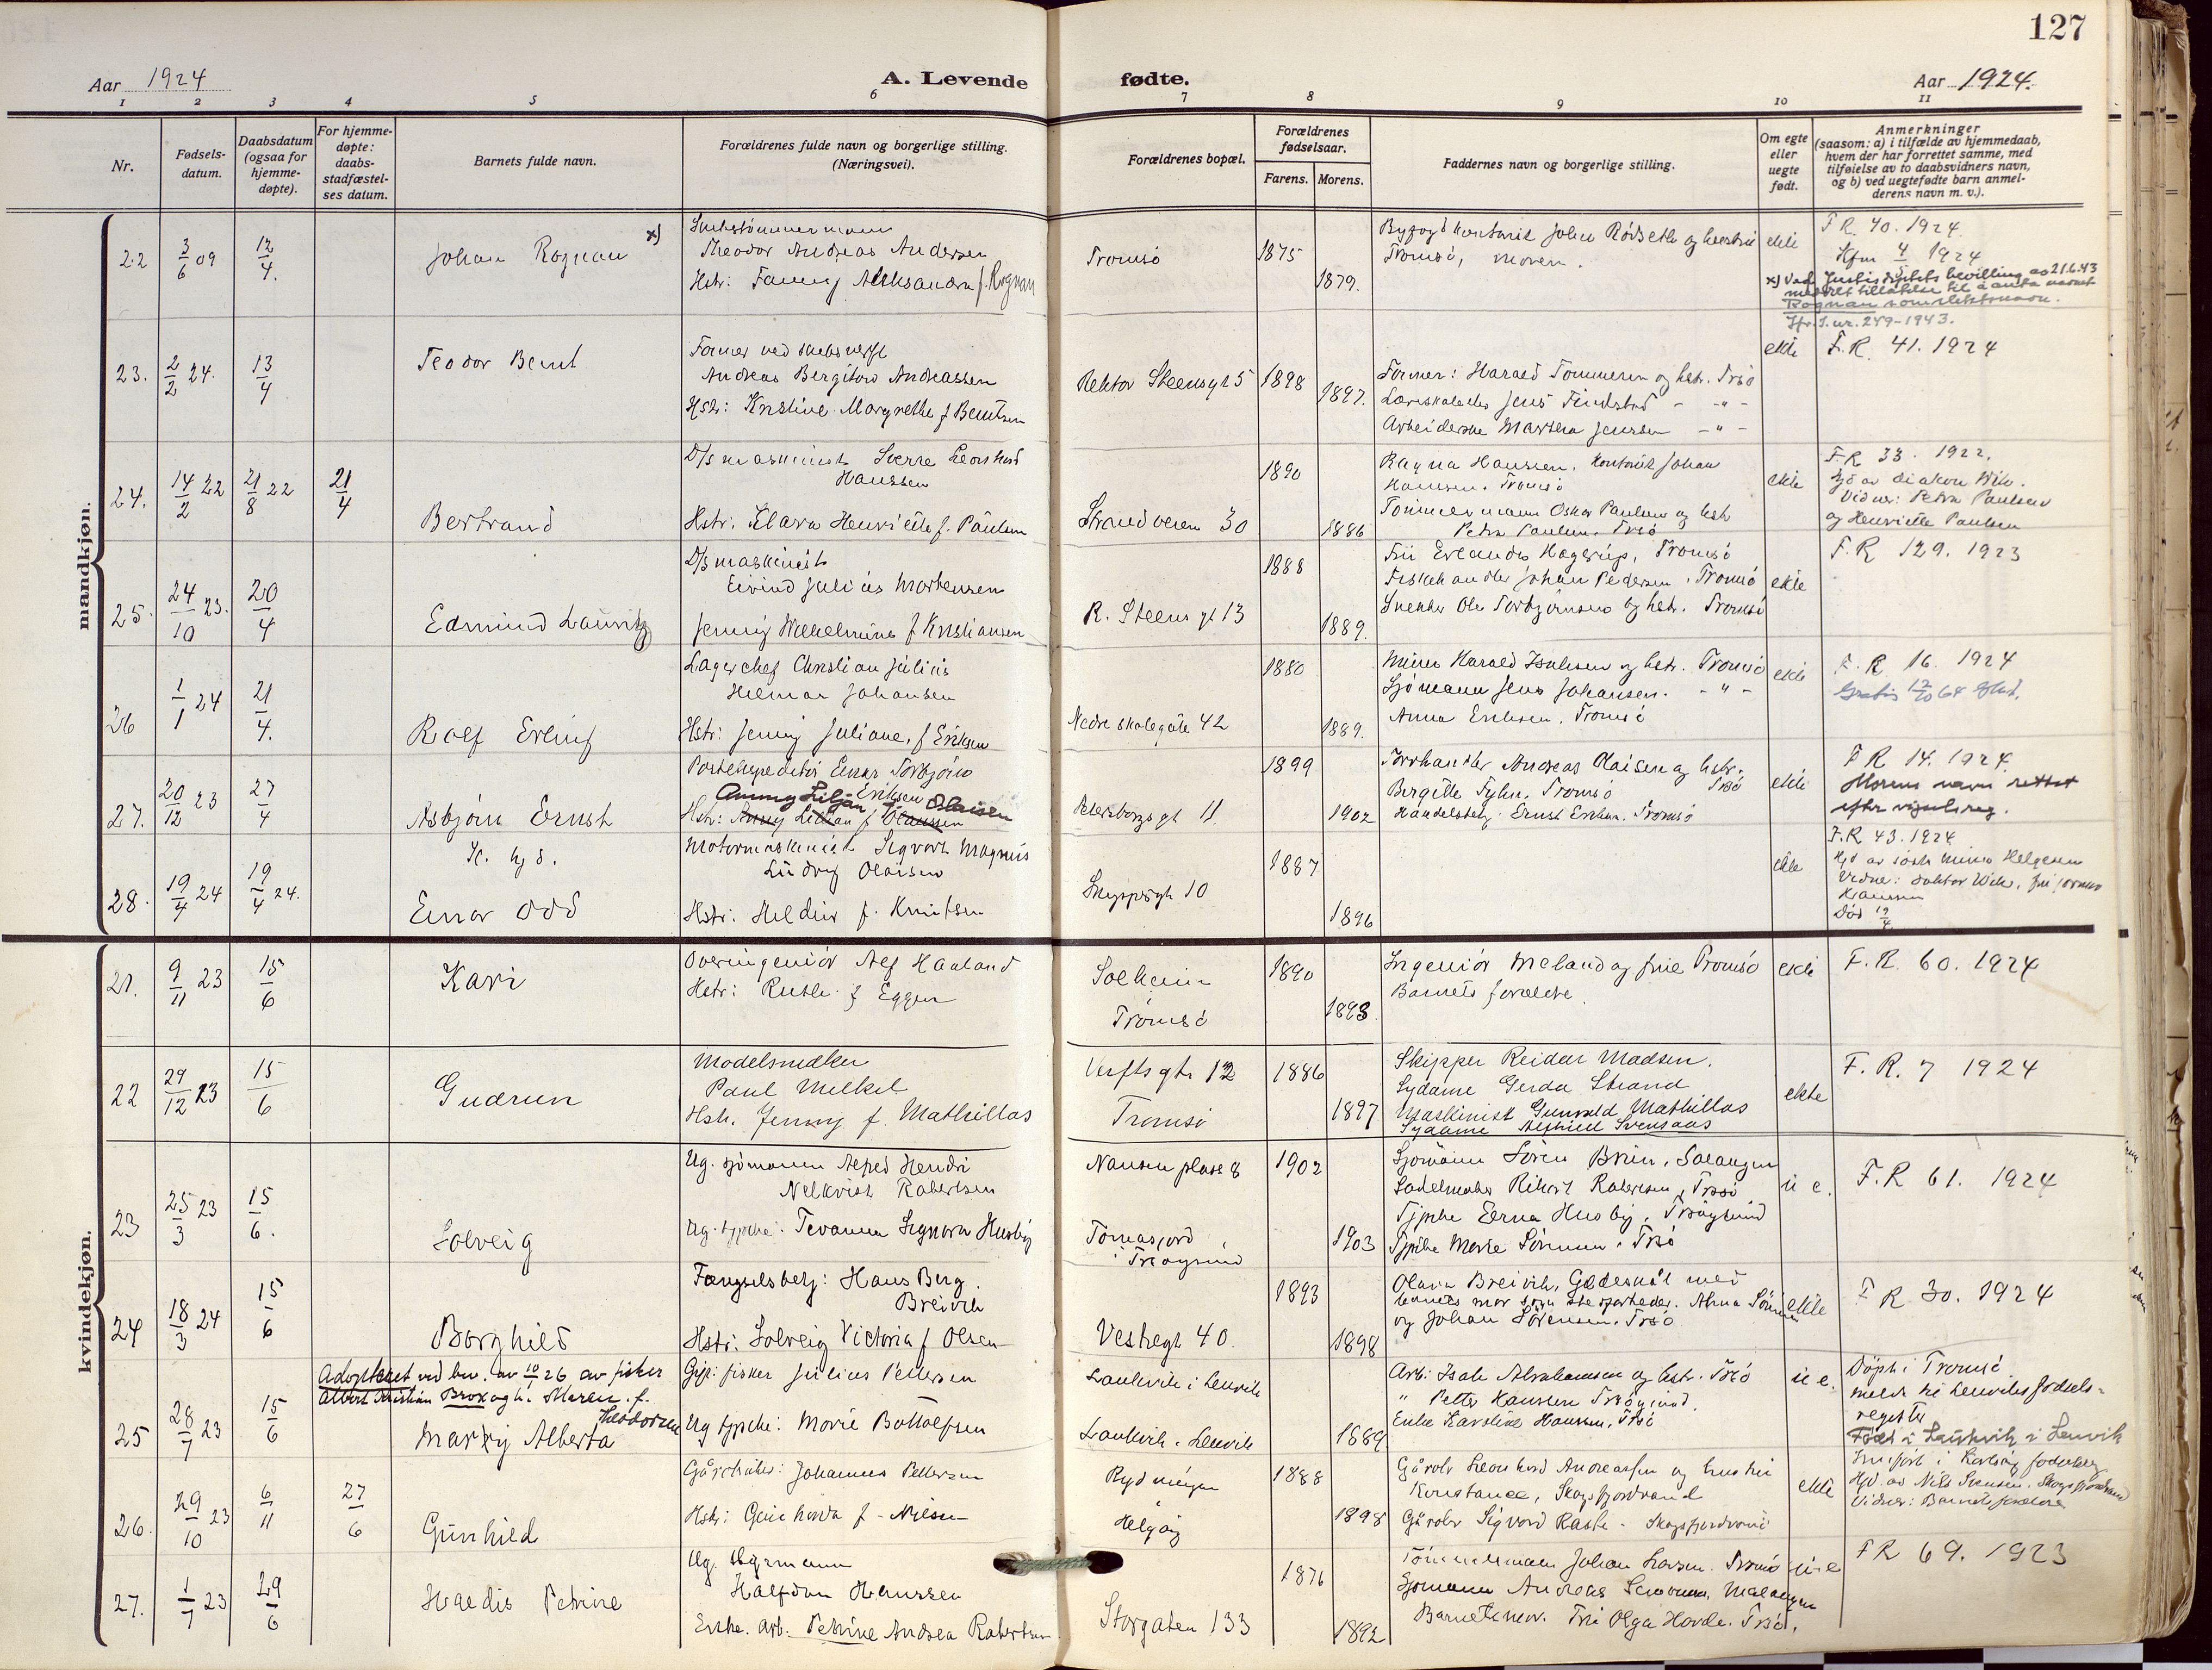 127
Aar 1924
A. Levende fødte.
Aar 1924.
1 2 3 4 5 6 7 8 9 10 11
Nr.
Fødsels-
datum.
Daabsdatum
(ogsaa for
hjemme-
døpte).
For hjemme-
døpte:
daabs-
stadfæstel-
ses datum.
Barnets fulde navn.
Forældrenes fulde navn og borgerlige stilling.
(Næringsvei).
Forældrenes bopæl.
Forældrenes
fødselsaar.
Farens. Morens.
Faddernes navn og borgerlige stilling.
Om egte
eller
uegte
født.
Anmerkninger
(saasom: a) i tilfælde av hjemmedaab,
hvem der har forrettet samme, med
tilføielse av to daabsvidners navn,
og b) ved uegtefødte barn anmel-
derens navn m. v.).
mandkjøn.
22 3/6 09 12/4. Johan Rognan x)
Theodor Andreas Andersen
Hstr: Fanny Aleksandra f. Rognan
Tromsö 1875 1879.
Tromsö, moren.
ekte
F R. 40. 1924.
Kfm 4/5 1924
x) Ved Justisdeptets bevilling av 21.6.43
meddelt tillatelse til å anta navnet
Rognan som slektsnavn.
Jfr. J. nr. 249-1943.
23. 2/2 24. 13/4 Teodor Bernt
Former ved skibsverft
Andreas Bergitow Andreassen
Hstr: Kristine Margrethe f Berntsen
Rektor Steensgt 5 1898 1897.
Former: Harald Tommeren og hstr. Trsö
Jens Findstad - " -
Arbeiderske Martha Jensen - " -
ekte F. R. 41. 1924
24. 14/2 22 21/8 22 21/4 Bertrand
D/s maskinist Sverre Leonhard
Hanssen
Hstr. Klara Henriette f. Paulsen
Strandveien 30 1890 1886
Ragna Hanssen. Kontorist Johan
Hanssen. Tromsö
Tömmermann Oskar Paulsen og hstr
Petra Paulsen. Trsö
ekte
F. R 33. 1922.
Hjd av diakon Wik.
Vidner: Petra Paulsen
og Henriette Paulsen
25. 24/10 23. 20/4 Edmund Lauritz
D/s maskinist
Eivind Julius Mortensen
Jenny Wilhelmine f Kristiansen
R. Steens gt 13 1888 1889.
Fru Erlanda Hagerup, Tromsö
Fiskehandler Johan Pedersen, Tromsö
Snekker Ole Torbjörnsen og hstr. Tromsö
ekte F. R 129. 1923
26 1/1 24 21/4. Rolf Erling
Lagerchef Christian Julius
Hilmar Johansen
Hstr: Jenny Juliane, f Eriksen
Nedre skolegate 42 1880 1889.
Murer Harald Isaksen og hstr. Tromsö
Sjömann Jens Johansen. - " -
Anna Eriksen. Tromsö
ekte F. R 16. 1924
27. 20/12 23 27/4 Asbjörn Ernst
Postekspeditör Einar Torbjörn
Eriksen
Anny Liljan Olaisen
Hstr: Anny Lillian f Olaussen
Petersborgs gt 11 1899 1902
Andreas Olaisen og hstr.
Birgitte Fyhn. Tromsö Trsö
Handelsbetj. Ernst Eriksen. Tromsö
ekte F R 14. 1924
Morens navn rettet
efter vigselsreg.
28. 19/4 24 19/4 24. Einar Odd
Motormaskinist Sigvart Magnus
Ludvig Olaisen
Hstr: Heldur f. Knutsen
Skippergt 10 1887 1896
ekte
F. R 43. 1924
Död 19/4
kvindekjøn.
21. 9/11 23 15/6 Kari
Overingeniör Alf Haaland
Hstr: Ruth f Eggen
Solheim
Tromsö 1890 1893.
Ingeniör Meland og frue Tromsö
Barnets foreldre.
ekte F. R. 60. 1924
22 29/12 23 15/6 Gudrun
Modelsnekker
Paul Melkel
Hstr. Jenny f. Mathillas
Verftsgt 12
Tromsö 1886 1897
Skipper Reidar Madsen.
Sydame Gerda Strand
Maskinist Gunvald Mathillas
Sydame Alfhild Svensaas
ekte F. R. 7 1924
23 25/3 23 15/6. Solveig
Ug. sjömann Alfred Hendri
Nelkvist Robertsen
Nansen plass 8 1902
Tomasjord
i Tromsöysund 1903
Sjömann Sören Brun, Salangen
Trsö
Tjpike Erna Husby, Trsöysund
Tjpike Marie Sörensen. Trsö
u e. F. R 61. 1924
24 18/3 24 15/6 Borghild
Fængselsbetj: Hans Berg
Breivik
Hstr: Solveig Victoria f Olsen
Vestregt 40. 1893 1898
og Johan Sörensen. Trsö
ekte F R 30. 1924
Adoptert ved bev. av 10/7 26 av fisker
Albert Kristian Brox og h. Maren f.
Theodorsen
25 28/7 23 15/6 Marry Alberta
Gift fisker Julius Pettersen
Ug tjpike: Marie Bottolfsen
Laukvik i Lenvik
Laukvik. Lenvik 1889
Arb: Isak Abrahamsen og hstr. Trsö
" Petter Hanssen Trsöysund.
Enke Karoline Hanssen, Trsö
u e.
Döpt i Tromsö
meldt til Lenvikes födsels-
register
Född i Laukvik i Lenvik
26. 29/10 23 6/11 27/6 Gunhild
Gårdbruker: Johannes Pettersen
Hstr: f. Nilsen
Helgöy 1888 1898
Gårdbr Leonhard Andreassen og hustru
Konstance, Skogsfjordvand
Gårdbr Sigvard Raste - Skogsfjordvand
ekte
Hjd. av Nils Svensen. Skogsfjordvand
Vidner: Barnets foreldre
27. 1/7 23 29/6 Haldis Petrine
Halfdan Hanssen
Enke. Arb. Petrine Andrea Robertsen
Storgaten 133 1876 1892
Tömmermann Johan Larsen. Tromsö
Barnets mor. Fru Olga Hovde. Trsö.
u e FR 69. 1923